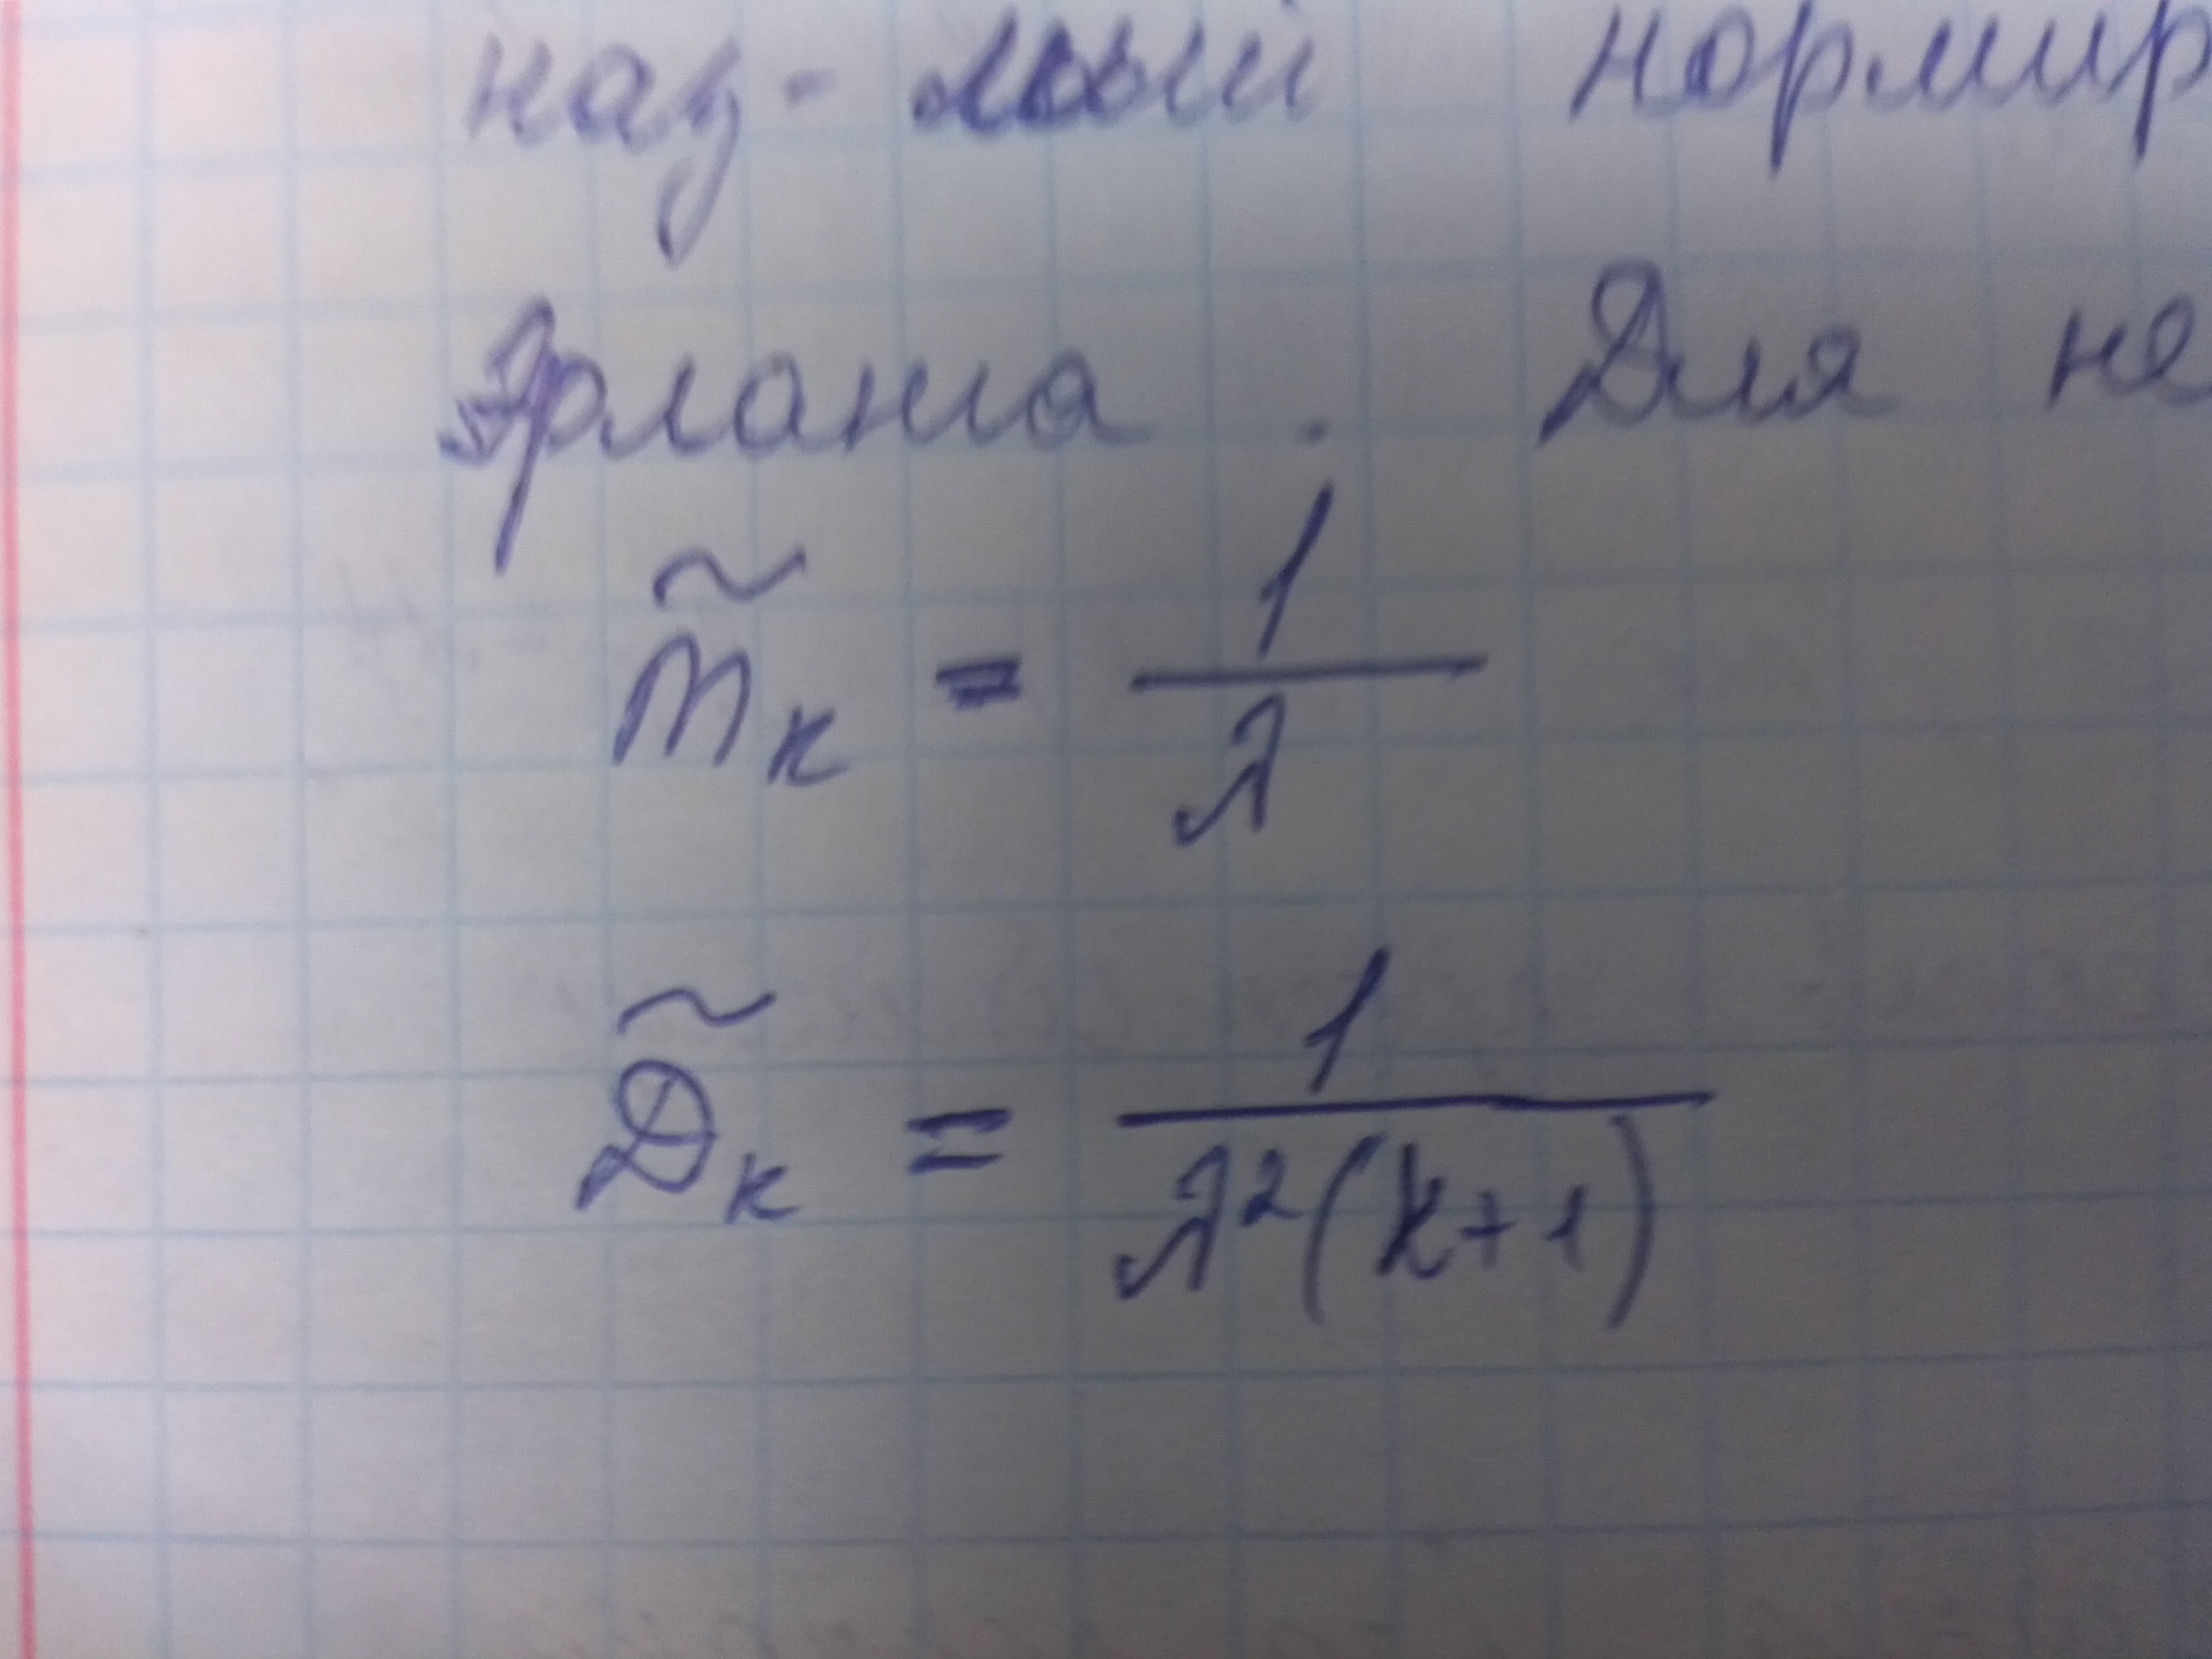 наз-мый нормир
Эрланга. Для не
m̃ₖ = 1/λ
D̃ₖ = 1/λ²(k+1)